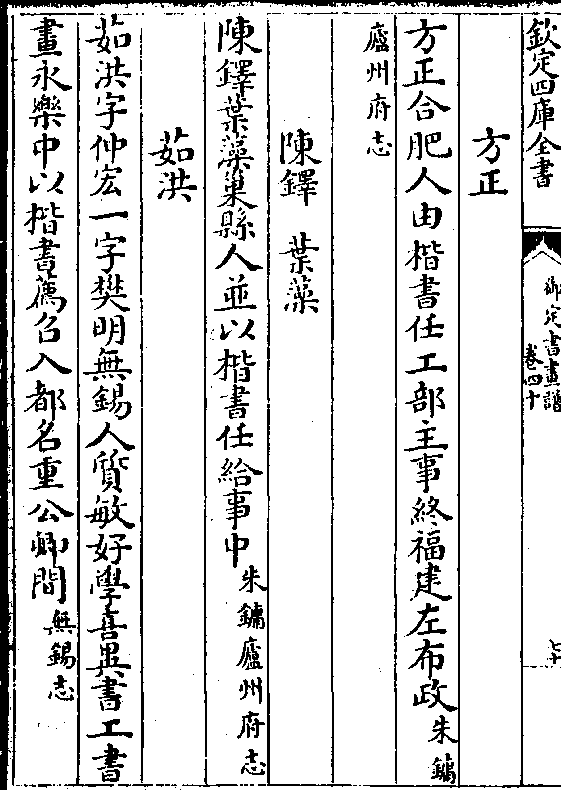 欽定四庫全書
御定書畫譜
卷四十
七十
方正
方正合肥人由楷書任工部主事終福建左布政朱鏞
廬州府志
陳鐸　葉藻
陳鐸葉藻巢縣人並以楷書任給事中朱鏞廬州府志
茹洪
茹洪字仲宏一字樊明無錫人質敏好學喜異書工書
畫永樂中以楷書薦召入都名重公卿間無錫志